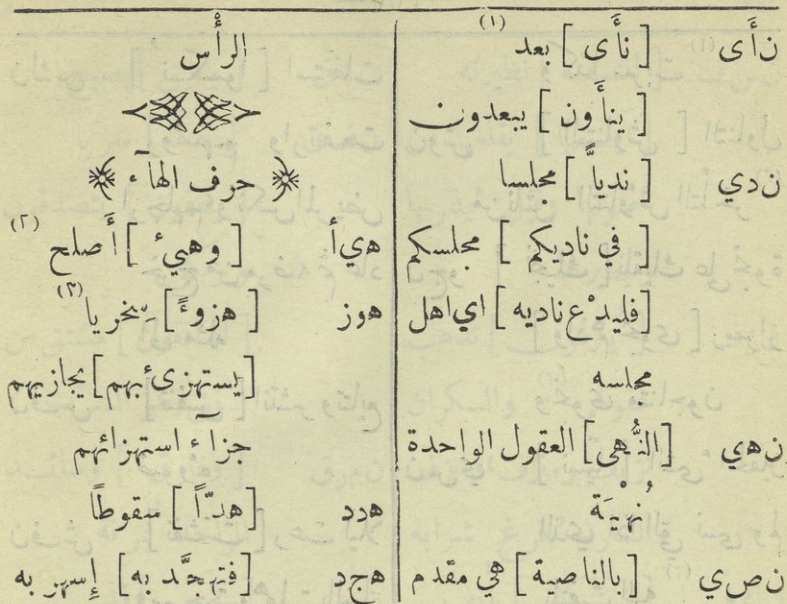 نأى [نأى] بعد (١)
[ينأون] يبعدون
ندي [ندياً] مجلسا
[في ناديكم] مجلسكم
[فليدْع ناديه] اي اهل
مجلسه
نهي [النُّهى] العقول الواحدة
نُهْيَة
نصي [بالناصية] هي مقدم
الرأْس
حرف الهآء
هيأ [وهيء] أصلح (٢)
هوز [هزوءً] سِخريا (٣)
[يستهزىء بهم] يجازيهم
جزآء استهزائهم
هدد [هدّاً] سقوطاً
هجد [فتهجَّد به] إسهر به